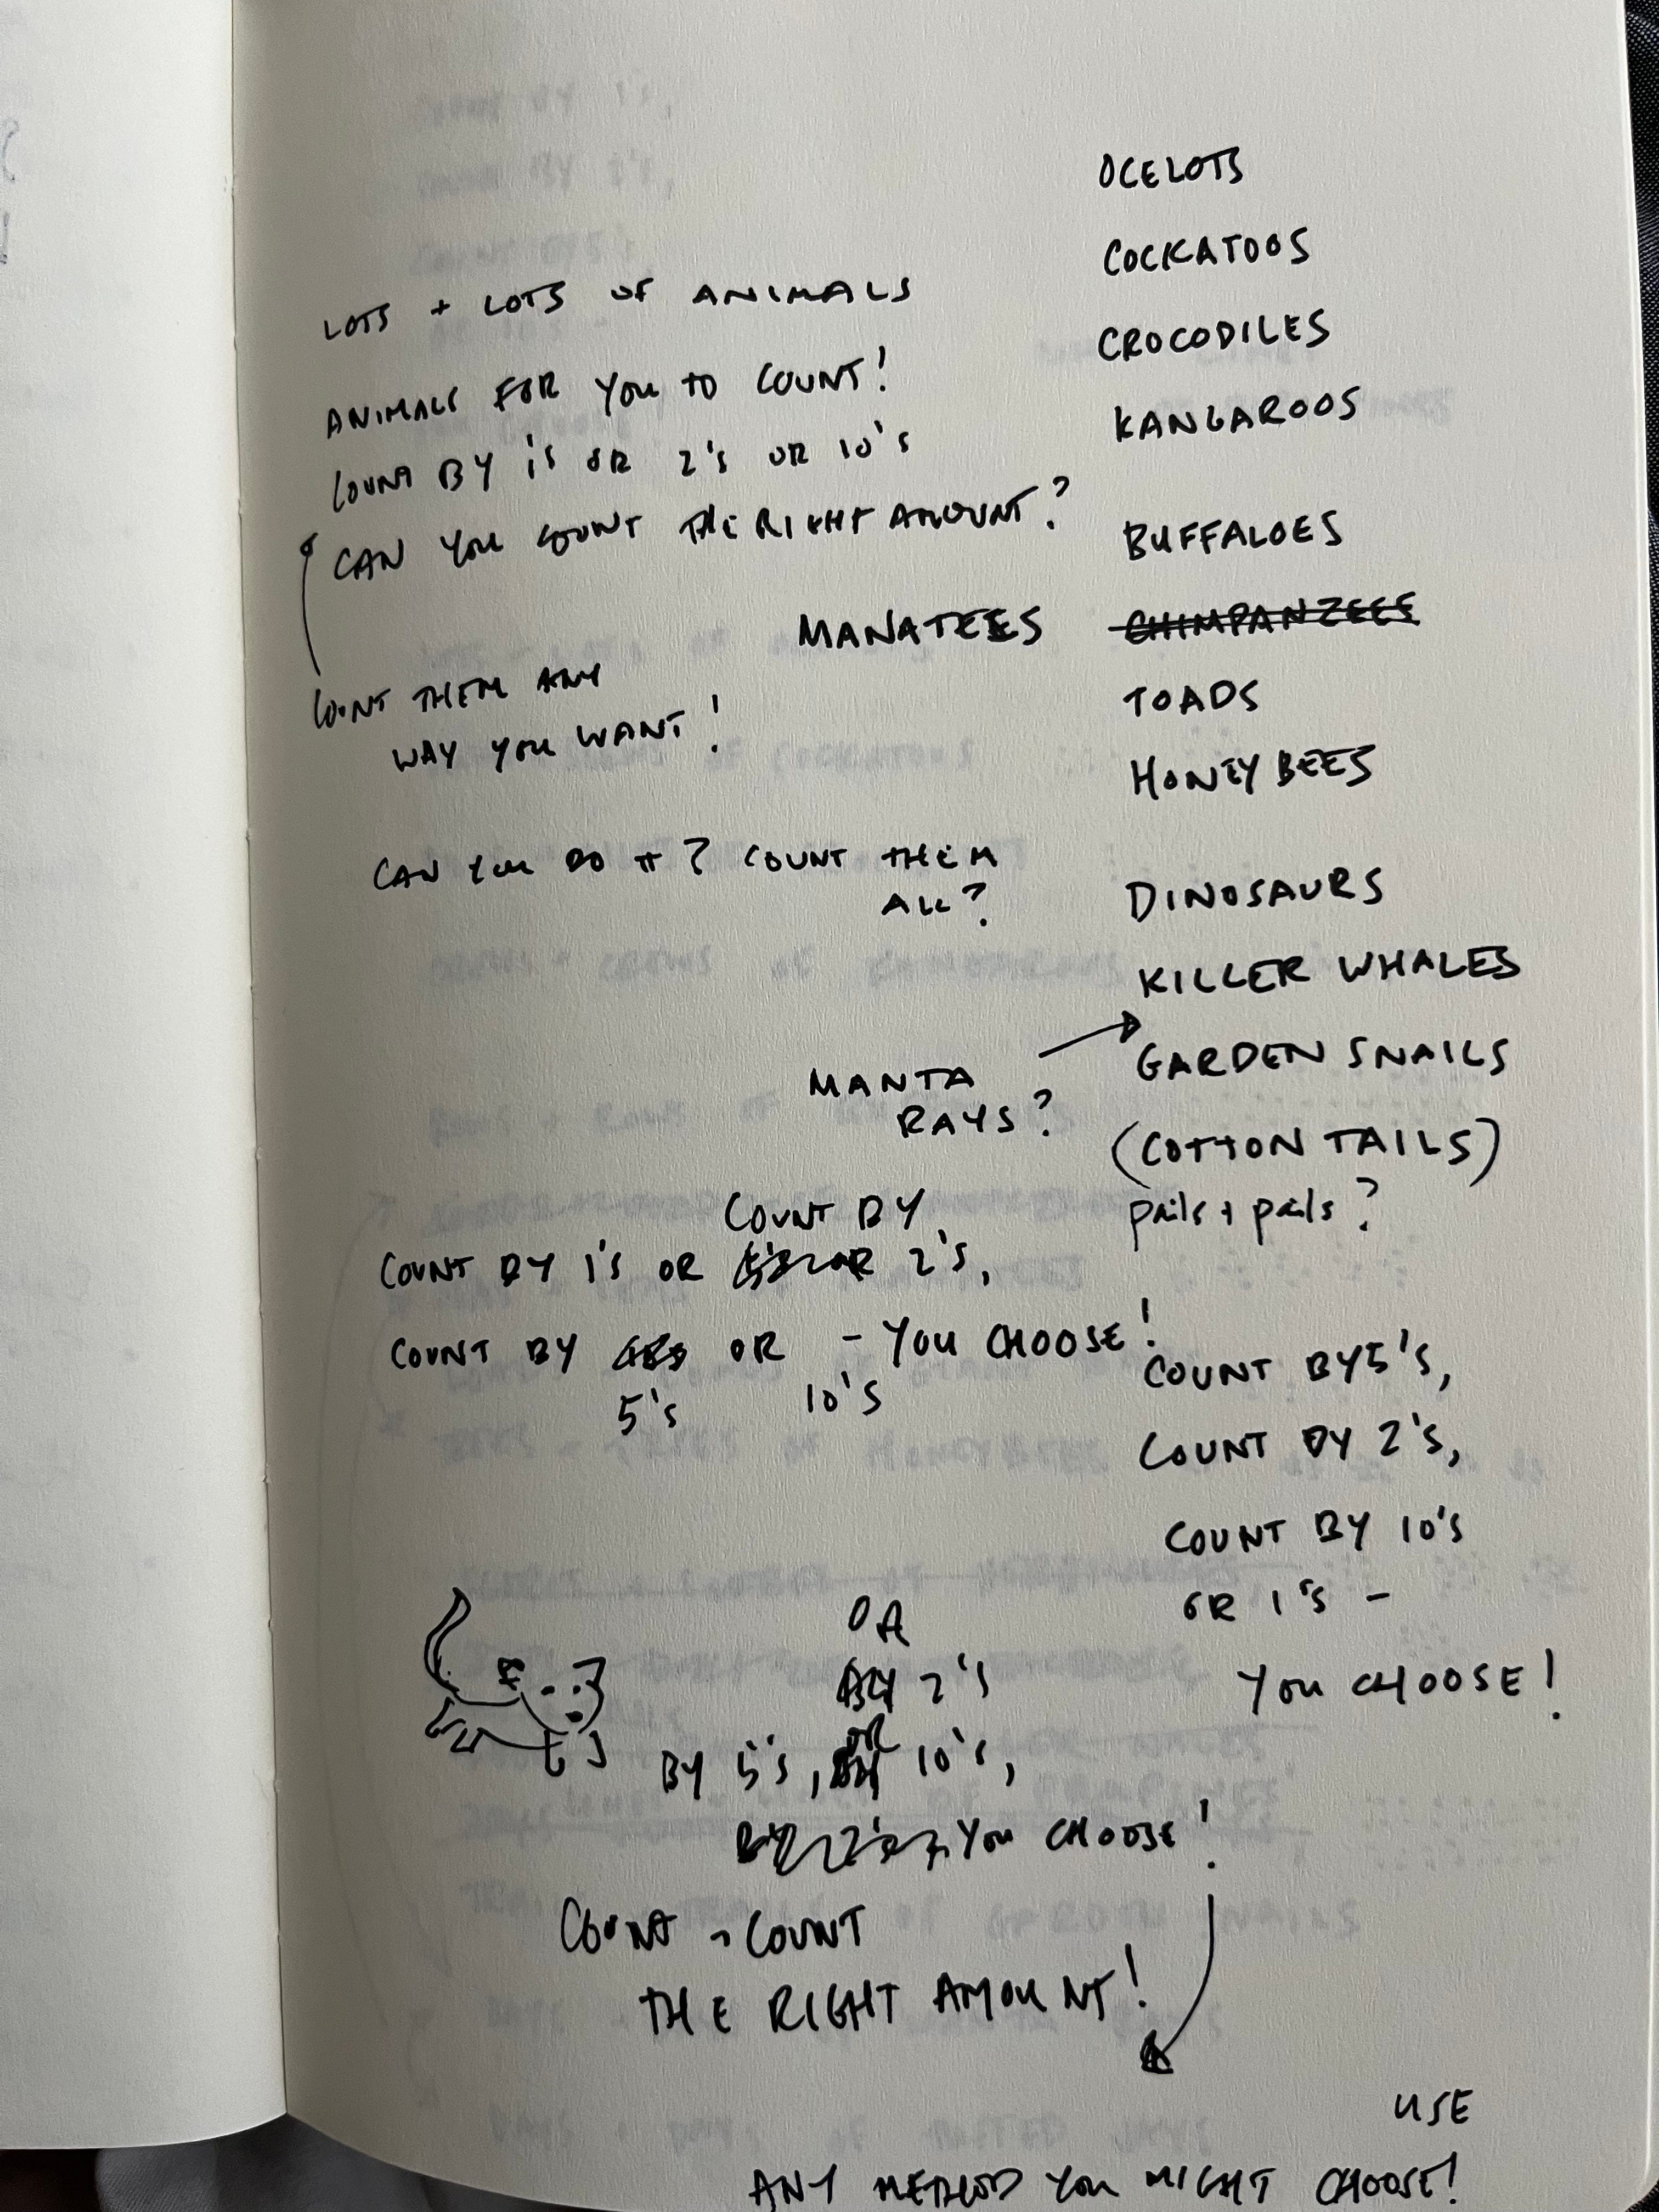 OCELOTS
COCKATOOS
CROCODILES
KANGAROOS
BUFFALOES
MANATEES CHIMPANZEES
TOADS
HONEY BEES
DINOSAURS
KILLER WHALES
GARDEN SNAILS
MANTA
RAYS?
(COTTON TAILS)
pails + pails?
LOTS + LOTS OF ANIMALS
ANIMALS FOR YOU TO COUNT!
COUNT BY 1's OR 2's OR 10's
CAN YOU COUNT THE RIGHT AMOUNT?
COUNT THEM ANY
WAY YOU WANT!
CAN YOU DO IT? COUNT THEM
ALL?
COUNT BY
COUNT BY 1's OR 2's,
COUNT BY OR - YOU CHOOSE!
5's 10's
COUNT BY 5's,
COUNT BY 2's,
COUNT BY 10's
OR 1's -
YOU CHOOSE!
OR
BY 2's
OR
BY 5's, BY 10's,
BY 2's, YOU CHOOSE!
COUNT + COUNT
THE RIGHT AMOUNT!
USE
ANY METHOD YOU MIGHT CHOOSE!